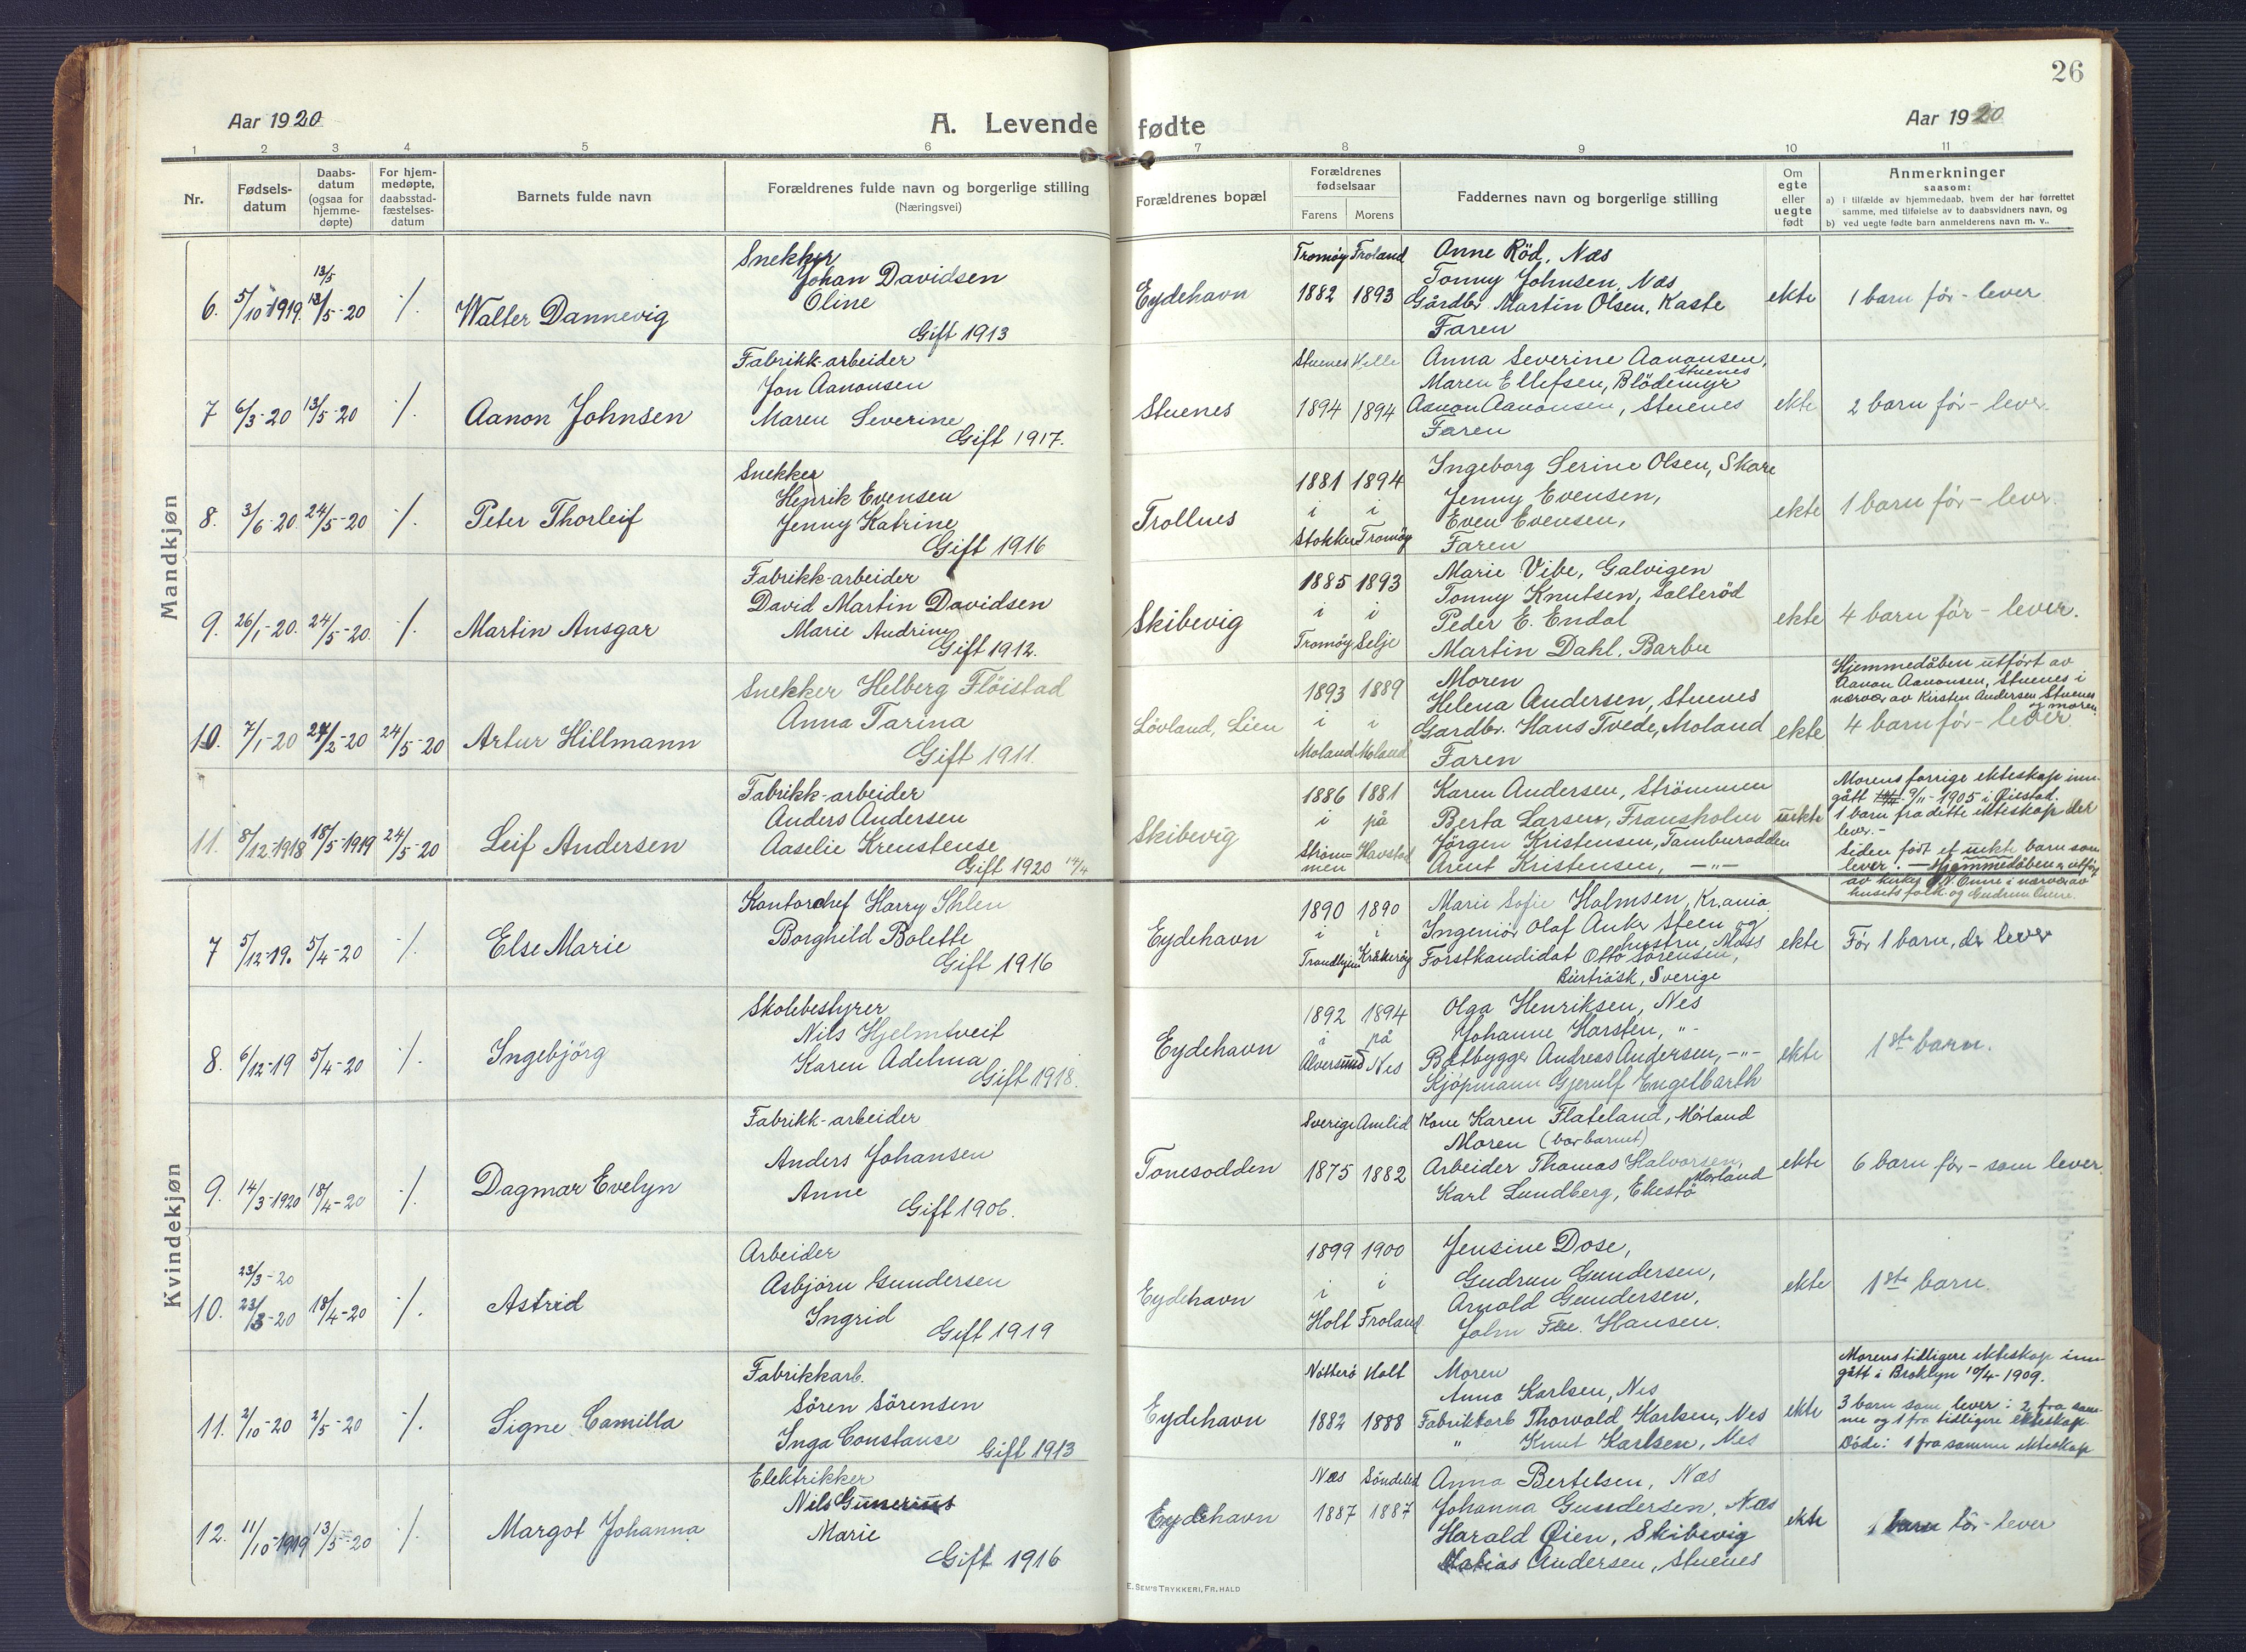 26
Aar 1920
A. Levende fødte
Aar 1920
1 2 3 4 5 6 7 8 9 10 11
Nr.
Fødsels-
datum
Daabs-
datum
(ogsaa for
hjemme-
døpte)
For hjem-
medøpte,
daabsstad-
fæstelses-
datum
Barnets fulde navn
Forældrenes fulde navn og borgerlige stilling
(Næringsvei)
Forældrenes bopæl
Forældrenes
fødselsaar
Farens Morens
Faddernes navn og borgerlige stilling
Om
egte
eller
uegte
født
Anmerkninger
saasom:
a) i tilfælde av hjemmedaab, hvem der har forrettet
samme, med tilføielse av to daabsvidners navn, og
b) ved uegte fødte barn anmelderens navn m. v..
Mandkjøn
6. 5/10-1919. 13/5 13/5-20 ·/· Walter Dannevig
Snekker
Johan Davidsen
Oline
Gift 1913
Eydehavn
Tromøy Froland
1882 1893
Anne Röd, Næs
Tonny Johnsen, Næs
Gårdbr. Martin Olsen, Kaste
Faren
ekte
1 barn før - lever
7 6/3-20 13/5-20 ·/· Aanon Johnsen
Fabrikk-arbeider
Jon Aanonsen
Maren Severine
Gift 1917.
Stuenes
Stuenes
1894 1894
Anna Severine Aanonsen,
Stuenes
Maren Ellefsen, Blödemyr
Aanon Aanonsen, Stuenes
Faren
ekte
2 barn før - lever.
8. 3/6-20. 24/5-20 ·/· Peter Thorleif
Snekker
Henrik Evensen
Jenny Katrine
Gift 1916
Trollnes
1881 1894
i i
Stokken Tromøy
Ingeborg Serine Olsen, Skare
Jenny Evensen,
Even Evensen,
Faren
ekte
1 barn før - lever.
9. 26/1-20. 24/5-20. ·/· Martin Ansgar
Fabrikk-arbeider
David Martin Davidsen
Marie Andrine
Gift 1912.
Skibevig
1885 1893
i i
Tromøy Selje
Marie Vibe, Galvigen
Tonny Knutsen, Salteröd
Peder E. Endal
Martin Dahl, Barbu
ekte
4 barn før - lever.
10. 7/1-20 24/2-20 24/5-20 Artur Hillmann
Snekker Helberg Flöistad
Anna Tarina
Gift 1911.
Lövland, Lien
1893 1889
i i
Moland Moland
Moren
Helena Andersen, Stuenes
Gardbr. Hans Tvede, Moland
Faren
ekte
Hjemmedåben utført av
Aanon Aanonsen, Stuenes i
nærvær av Kirsten Andersen Stuenes
og moren.
4 barn før - lever
11. 8/12-1918 18/5-1919 24/5-20 Leif Andersen
Fabrikk-arbeider
Anders Andersen
Aaselie Krenstense
Gift 1920 14/4
Skibevig
1886 1881
i på
Ström=
men Havstad
Karen Andersen, Strömmen
Berta Larsen, Fransholm
Jörgen Kristensen, Tamburodden
Arent Kristensen, -"-
uekte
Morens forrige ekteskap inn-
gått 9/11-1905 i Øiestad.
1 barn fra dette ekteskap der
lever.-
Siden født et uekte barn som
lever. - Hjemmedåben er utført
av kirkes. N. Onne i nærvær av
husets folk og Gudrun Onne.
Kvindekjøn
7 5/12-19. 5/4-20 ·/· Else Marie
Kontorchef Harry Ihlen
Borghild Bolette
Gift 1916
Eydehavn
1890 1890
i i
Trondhjem Kråkerøy
Marie Sofie Holmsen, Kr.ania
Ingeniör Olaf Anker Steen og
hustru, Moss
Forstkandidat Otto Sörensen,
Burträsk, Sverige
ekte
Før 1 barn, der lever
8. 6/12-19 5/4-20 ·/· Ingebjörg
Skolebestyrer
Nils Hjelmtveit
Karen Adelma
Gift 1918.
Eydehavn
1892 1894
i på
Alversund Nes
Olga Henriksen, Nes
Johanne Harsten, "-
Båtbygger Andreas Andersen, -"-
Kjöpmann Gjerulf Engelbarth
ekte
1ste barn.
9. 14/3-1920 18/4-20 ·/· Dagmar Evelyn
Fabrikk-arbeider
Anders Johansen
Anne
Gift 1906.
Tonesodden
Sverige Åmlid
1875 1882
Kone Karen Flateland, Mörland
Moren (bar barnet)
Arbeider Thomas Halvorsen,
Mörland
Karl Lundberg, Ekestö
ekte
6 barn før - som lever.
10. 23/3-20 23/3-20 18/4-20 ·/· Astrid
Arbeider
Asbjörn Gundersen
Ingrid
Gift 1919
Eydehavn
1899 1900
i i
Holt Froland
Jensine Dose,
Gudrun Gundersen,
Arnold Gundersen,
John Hansen.
ekte
1ste barn.
11. 2/10-20 2/5-20 ·/· Signe Camilla
Fabrikkarb.
Sören Sörensen
Inga Constanse Gift 1913
Eydehavn
Nötterö Holt
1882 1888
Moren
Anna Karlsen, Nes
Fabrikkarb Thorvald Karlsen, Nes
" Knut Karlsen, Nes
ekte
Morens tidligere ekteskap inn-
gått i Broklyn 10/4-1909.
3 barn som lever: 2 fra sam-
me og 1 fra tidligere ekteskap
Döde: 1 fra samme ekteskap
12. 11/10-1919 13/5-20 ·/· Margot Johanna
Elektrikker
Nils Gunerius
Marie
Gift 1916
Eydehavn
Næs Söndeled
1887 1887
Anna Bertelsen, Næs
Johanna Gundersen, Næs
Harald Øien, Skibevig
Matias Andersen, Stuenes
ekte
1 barn før - lever
E. SEM'S TRYKKERI, FR.HALD